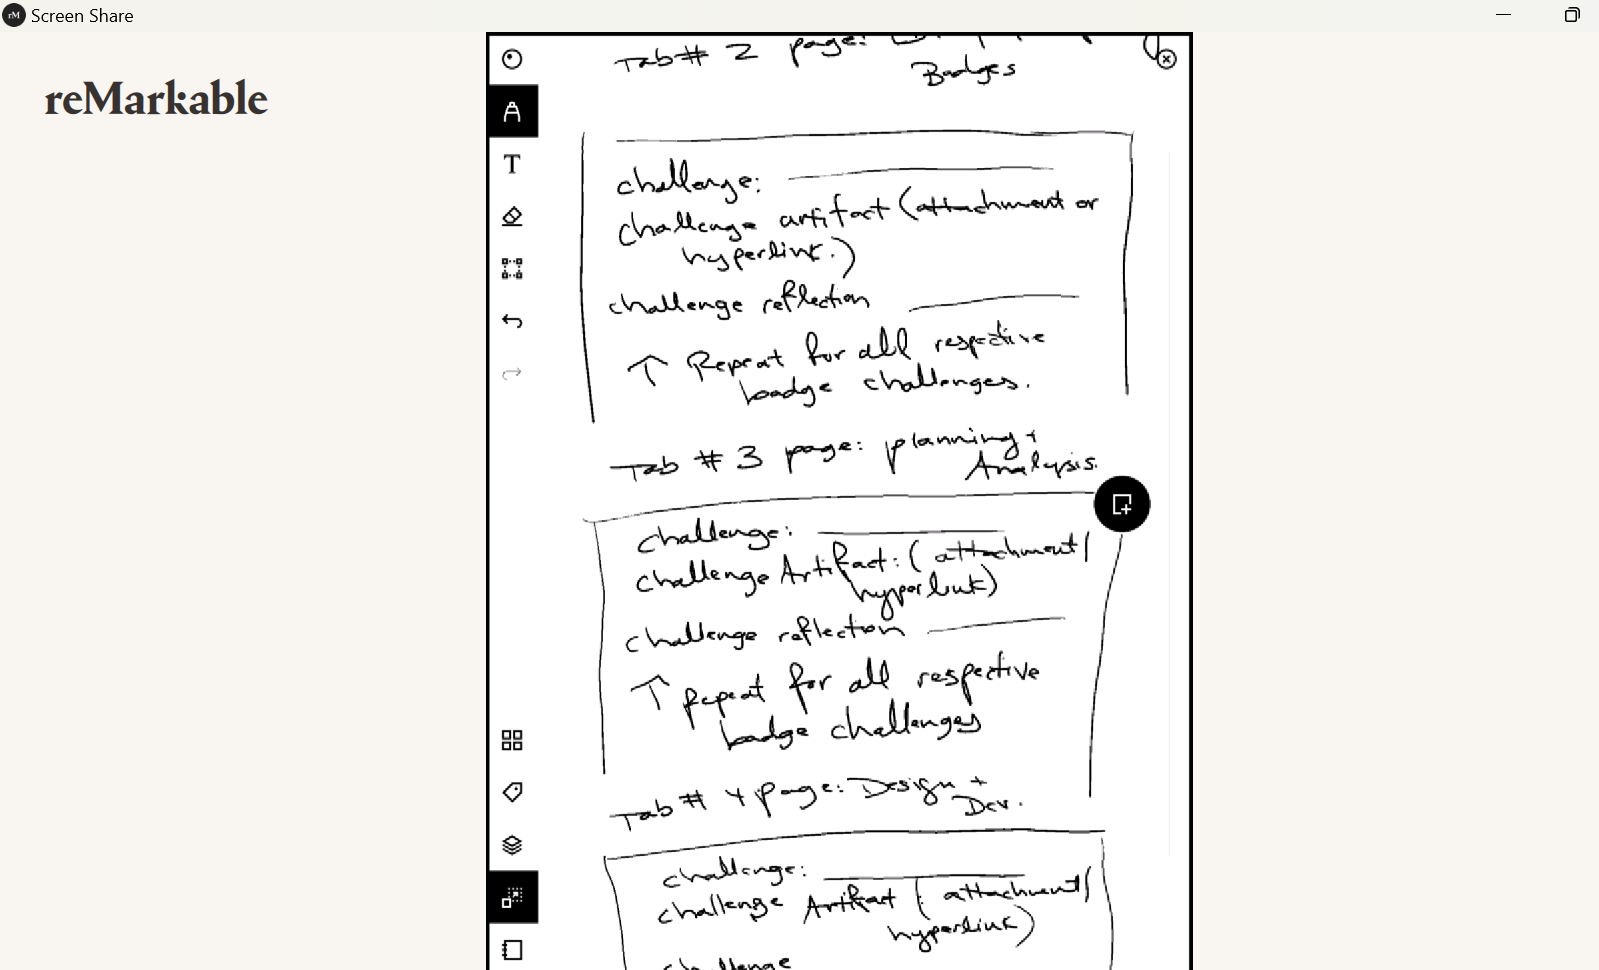 rM Screen Share
reMarkable
Tab # 2 page:
Badges
challenge:
challenge artifact (attachment or
hyperlink.)
challenge reflection
↑ Repeat for all respective
badge challenges.
Tab # 3 page: planning +
Analysis.
challenge:
challenge Artifact: (attachment/
hyperlink)
challenge reflection
↑ Repeat for all respective
badge challenges
Tab # 4 page: Design +
Dev.
challenge:
challenge Artifact (attachment/
hyperlink)
challenge
T